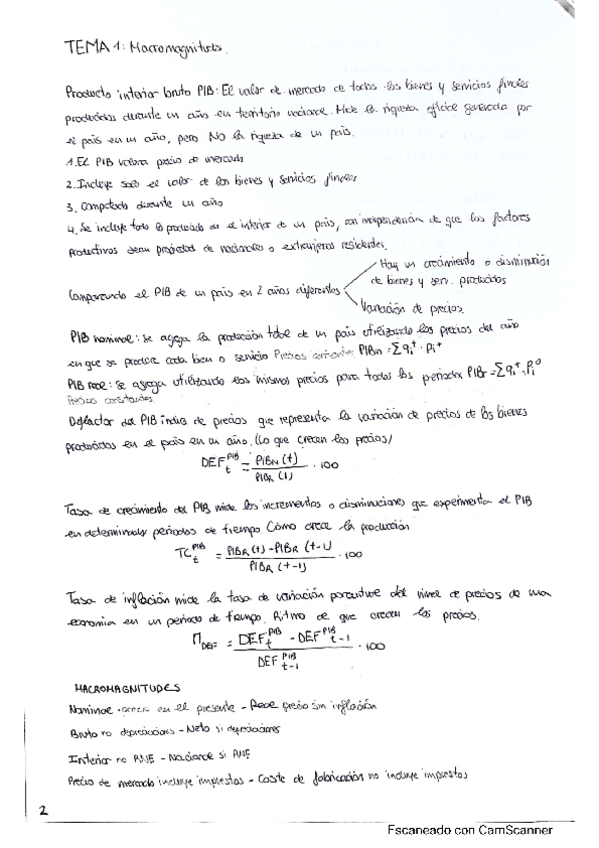 TEMA 1: Macromagnitudes.
Producto interior bruto PIB: El valor de mercado de todos los bienes y servicios finales
producidos durante un año en territorio nacional. Mide la riqueza oficial generada por
el país en un año, pero NO la riqueza de un país.
1. El PIB valora precio de mercado
2. Incluye solo el valor de los bienes y servicios finales
3. Computado durante un año
4. Se incluye todo lo producido en el interior de un país, con independencia de que los factores
productivos sean propiedad de nacionales o extranjeros residentes.
Comparando el PIB de un país en 2 años diferentes
Hay un crecimiento o disminución
de bienes y serv. producidos
Variación de precios.
PIB nominal: se agrega la producción total de un país utilizando los precios del año
en que se produce cada bien o servicio Precios corrientes PIBn = Σqᵢᵗ · Pᵢᵗ
PIB real: Se agrega utilizando los mismos precios para todos los periodos PIBr = Σqᵢᵗ · Pᵢ⁰
Precios constantes.
Deflactor del PIB índice de precios que representa la variación de precios de los bienes
producidos en el país en un año. (Lo que crecen los precios)
DEFₜᴾᴵᴮ = PIBN (t) / PIBR (t) · 100
Tasa de crecimiento del PIB mide los incrementos o disminuciones que experimenta el PIB
en determinados periodos de tiempo. Cómo crece la producción
TCₜᴾᴵᴮ = PIBR (t) - PIBR (t-1) / PIBR (t-1) · 100
Tasa de inflación mide la tasa de variación porcentual del nivel de precios de una
economía en un periodo de tiempo. Ritmo de que crecen los precios.
Π DEF = DEFₜᴾᴵᴮ - DEFₜ₋₁ᴾᴵᴮ / DEFₜ₋₁ᴾᴵᴮ · 100
MACROMAGNITUDES
Nominal en el presente - Real precio sin inflación
Bruto no depreciaciones - Neto si depreciaciones
Interior no RNE - Nacional si RNE
Precio de mercado incluye impuestos - Coste de fabricación no incluye impuestos
2
Escaneado con CamScanner